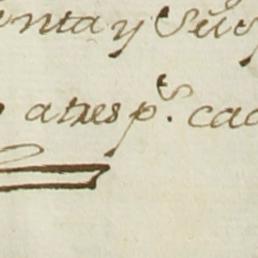 enta y Seis
atres p.s cad